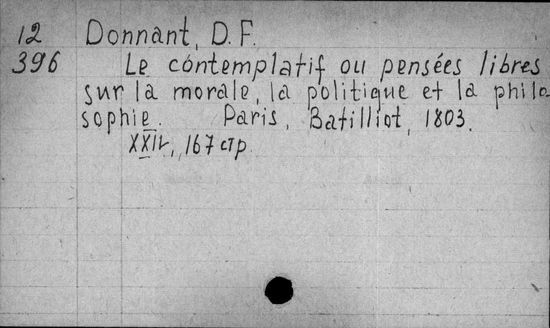 12 Donnant, D. F.
396 Le contemplatif ou pensées libres
sur la morale, la politique et la philo
sophie. Paris, Batilliot, 1803.
XXIV, 167 стр